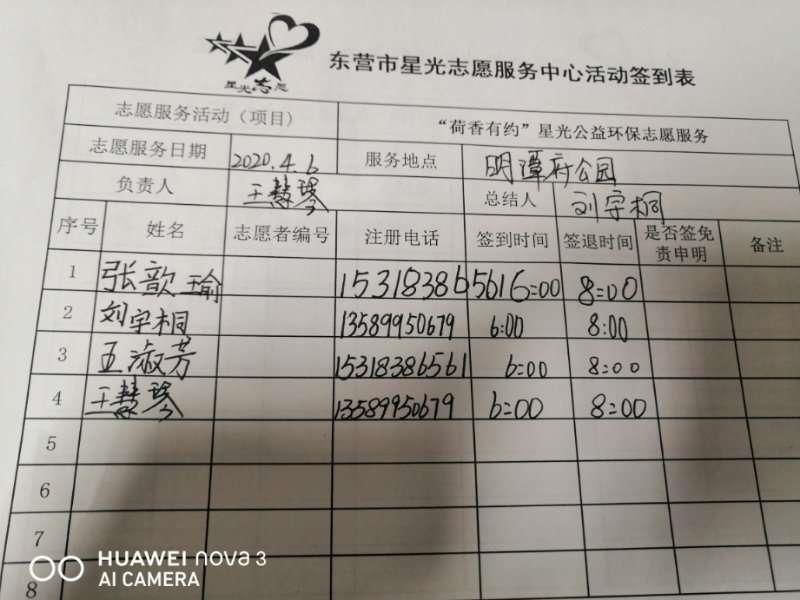 星光志愿
东营市星光志愿服务中心活动签到表
志愿服务活动（项目） “荷香有约”星光公益环保志愿服务
志愿服务日期 2020.4.6 服务地点 明潭府公园
负责人 王慧琴 总结人 刘宇桐
序号 姓名 志愿者编号 注册电话 签到时间 签退时间 是否签免责申明 备注
1 张歆瑜 15318386561 6:00 8:00
2 刘宇桐 13589950679 6:00 8:00
3 王淑芳 15318386561 6:00 8:00
4 王慧琴 13589950679 6:00 8:00
5
6
7
8
HUAWEI nova 3
AI CAMERA